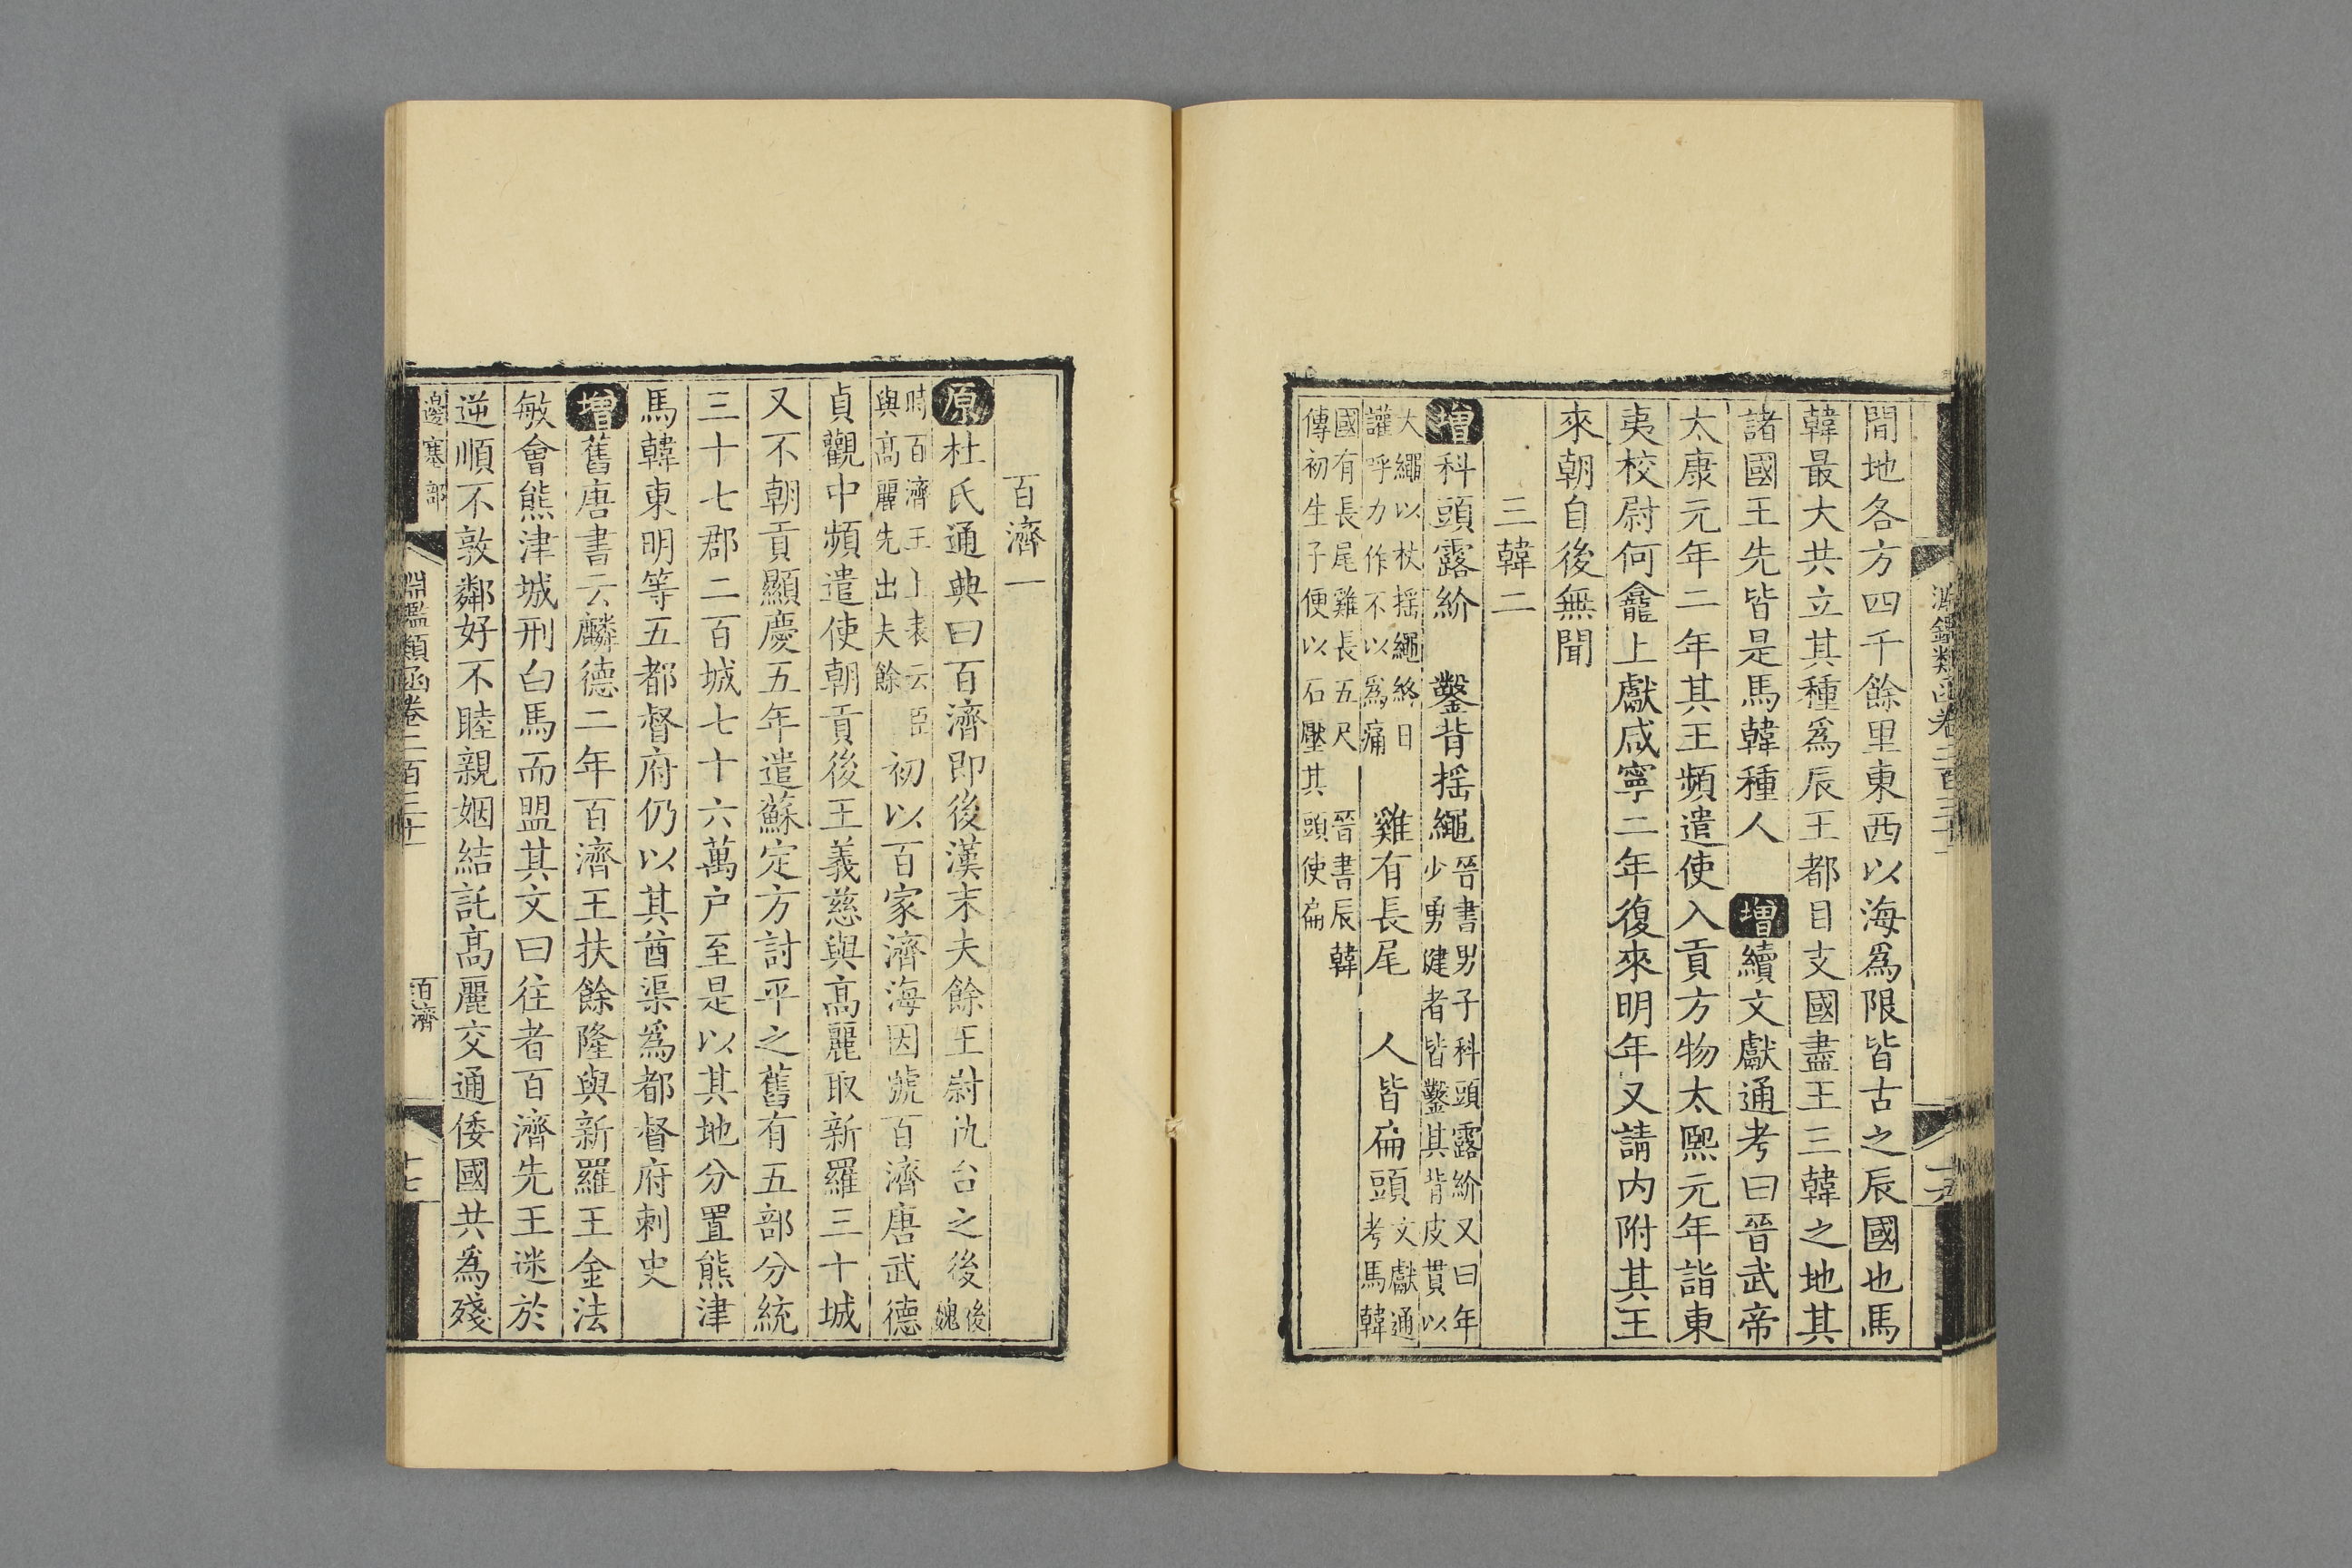 間地各方四千餘里東西以海爲限皆古之辰國也馬
韓最大共立其種爲辰王都目支國盡王三韓之地其
諸國王先皆是馬韓種人 增續文獻通考曰晉武帝
太康元年二年其王頻遣使入貢方物太熙元年詣東
夷校尉何龕上獻咸寧二年復來明年又請内附其王
來朝自後無聞
三韓二
增科頭露紒 鑿背揺繩 晉書男子科頭露紒又曰年
少勇健者皆鑿其背皮貫以
大繩以杖揺繩終日
讙呼力作不以爲痛 雞有長尾 人皆扁頭 文獻通
考馬韓
國有長尾雞長五尺 晉書辰韓
傳初生子便以石壓其頭使扁
百濟一
原杜氏通典曰百濟即後漢末夫餘王尉仇台之後 後
魏
時百濟王上表云臣
與高麗先出夫餘 初以百家濟海因號百濟唐武德
貞觀中頻遣使朝貢後王義慈與高麗取新羅三十城
又不朝貢顯慶五年遣蘇定方討平之舊有五部分統
三十七郡二百城七十六萬户至是以其地分置熊津
馬韓東明等五都督府仍以其酋渠爲都督府刺史
增舊唐書云麟德二年百濟王扶餘隆與新羅王金法
敏會熊津城刑白馬而盟其文曰往者百濟先王迷於
逆順不敦鄰好不睦親姻結託高麗交通倭國共爲殘
邊塞部 淵鑑類函卷二百三十 百濟 十七